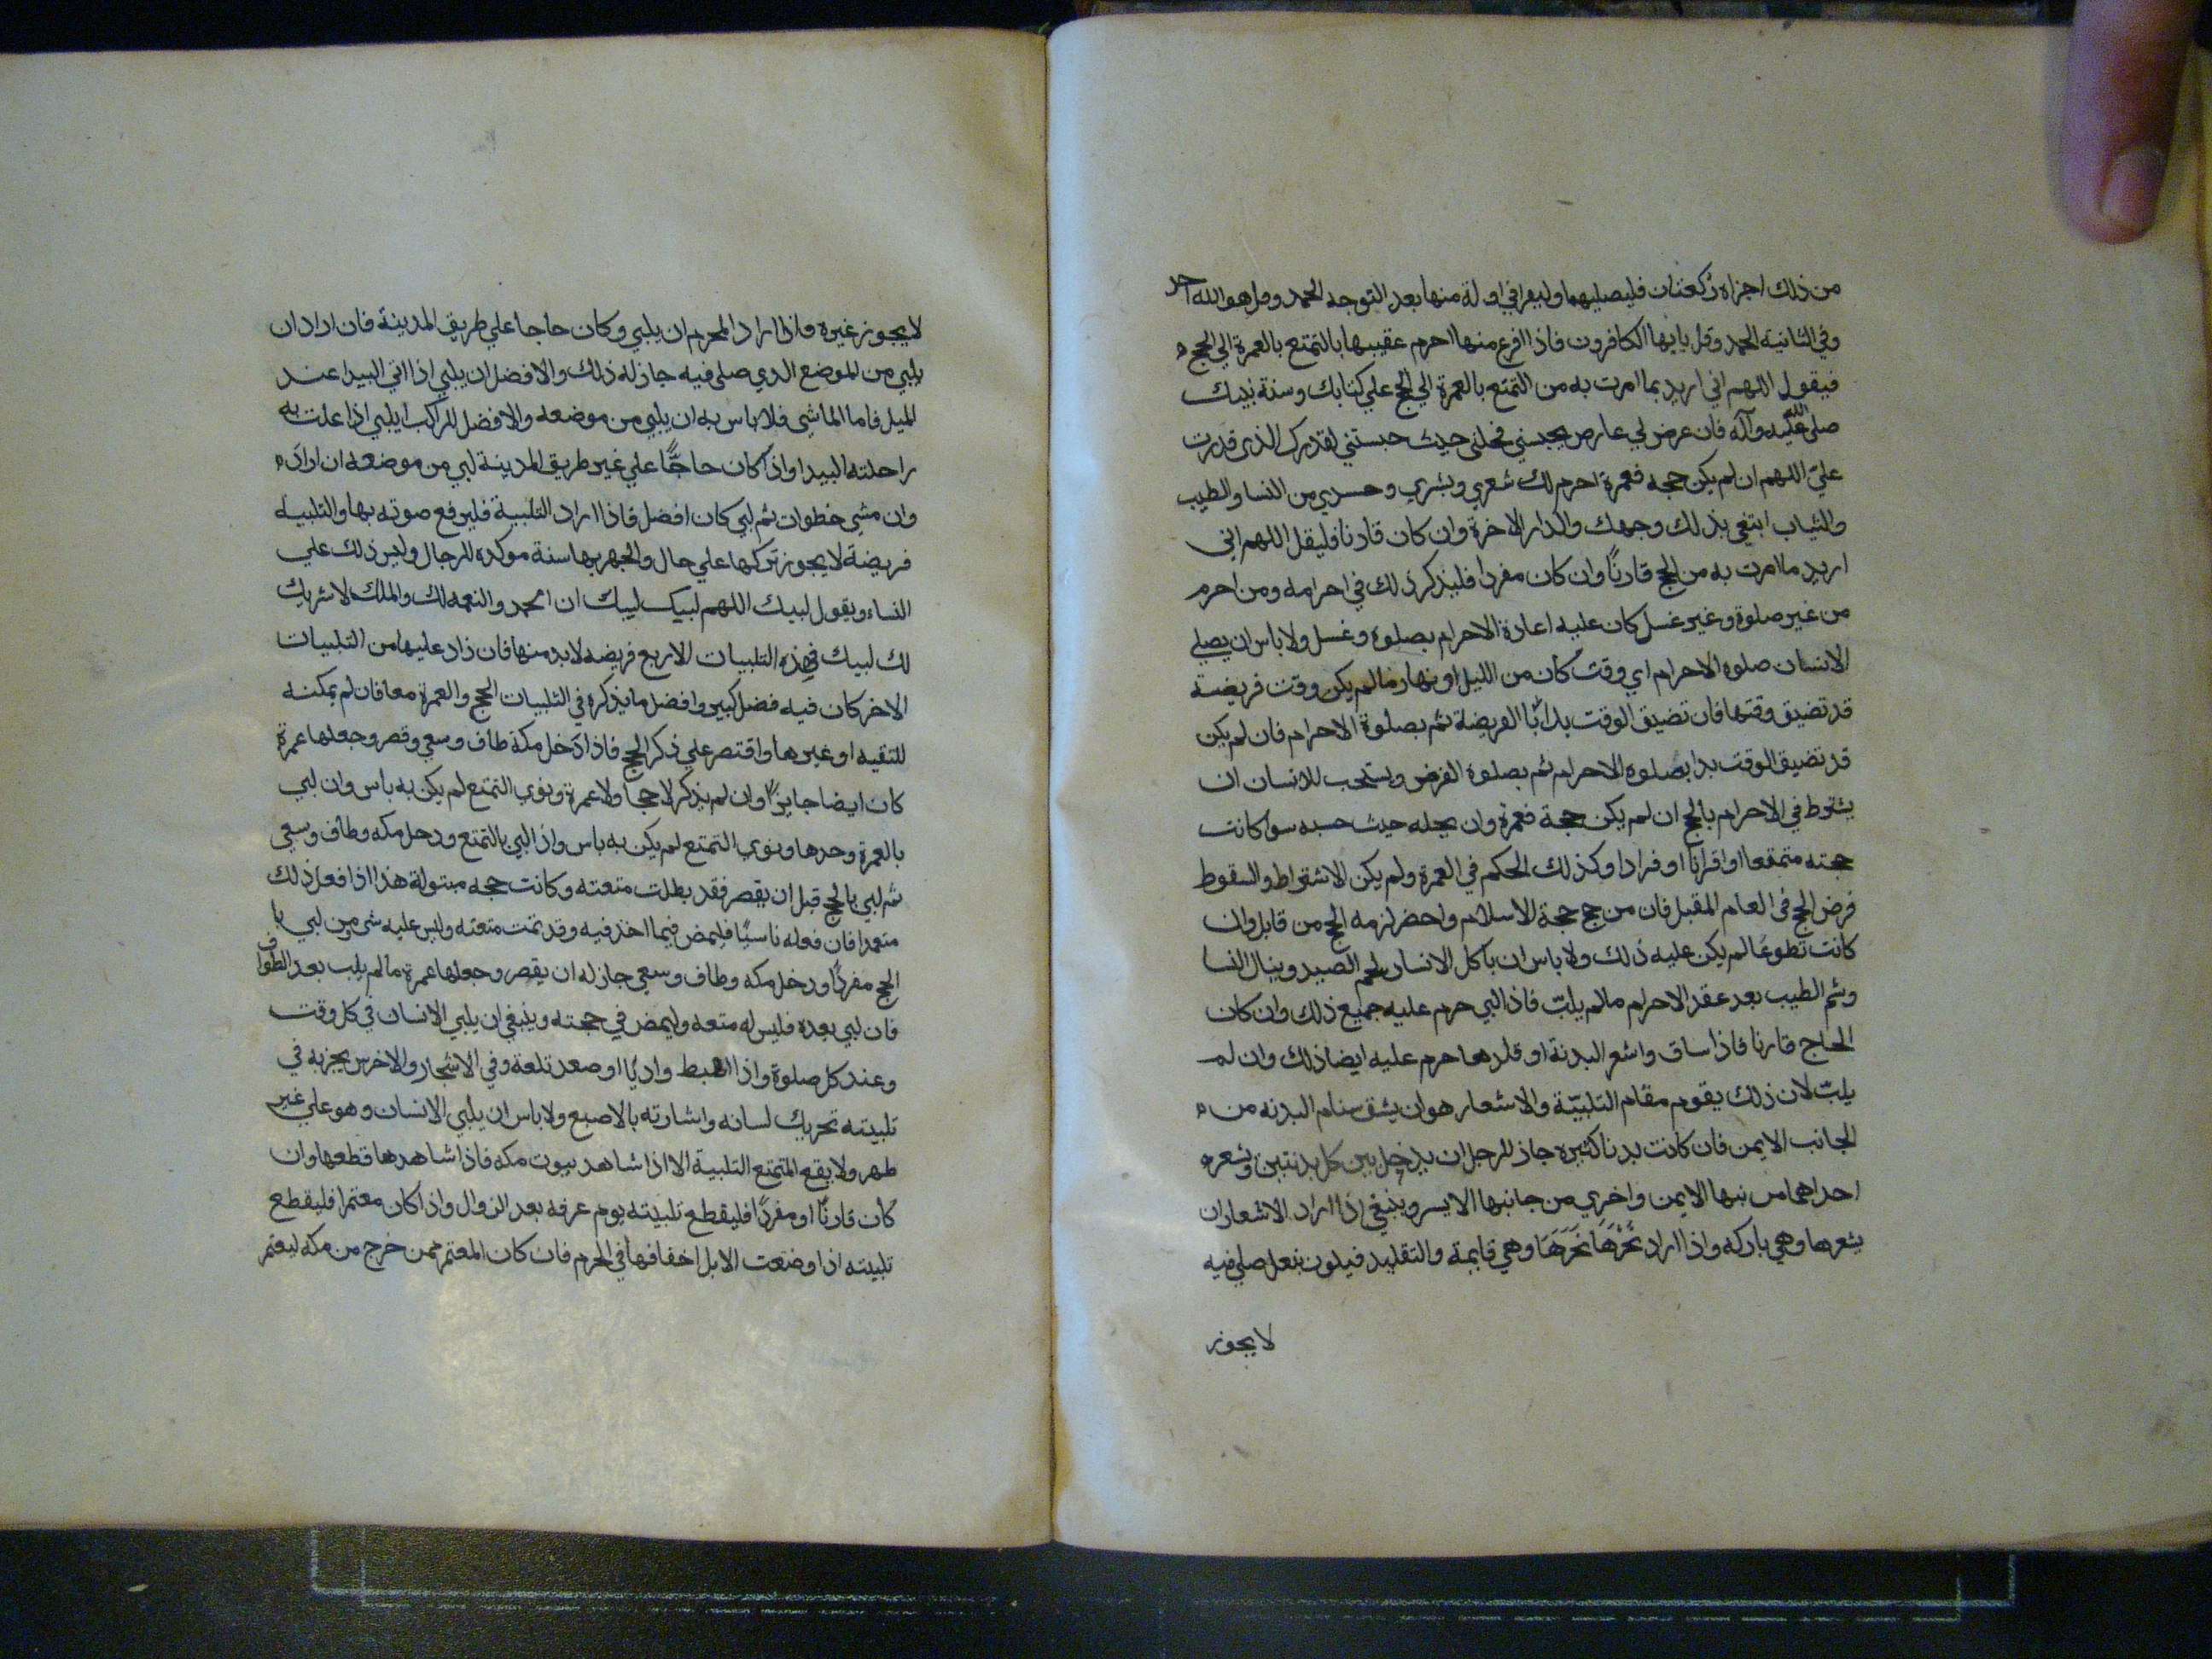 من ذلك اجزاه ركعتان فليصليهما وليقرا في اوله منها بعد التوجه الحمد وقل هو الله احد
وفي الثانيه الحمد وقل يايها الكافرون فاذا افرغ منها احرم عقيبها بالتمتع بالعمرة الي الحج
فيقول اللهم اني اريد بما امرت به من التمتع بالعمرة الي الحج علي كتابك وسنة نبيك
صلى الله عليه وآله فان عرض لي عارض يحبسني فحلني حيث حبستني لقدرك الذي قدرت
عليّ اللهم ان لم يكن حجه فعمرة احرم لك شعري وبشري وجسدي من النسا والطيب
والثياب ابتغي بذلك وجهك والدار الاخرة وان كان قارنا فليقل اللهم اني
اريد ما امرت به من الحج قارنًا وان كان مفردا فليذكر ذلك في احرامه ومن احرم
من غير صلوة وغير غسل كان عليه اعادة الاحرام بصلوه وغسل ولا باس ان يصلي
الانسان صلوه الاحرام اي وقت كان من الليل او نهار ما لم يكن وقت فريضة
قد تضيق وقتها فان تضيق الوقت بدا بالفريضة ثم بصلوة الاحرام فان لم يكن
قد تضيق الوقت بدا بصلوه الاحرام ثم بصلوة الفرض ويستحب للانسان ان
يشترط في الاحرام بالحج ان لم يكن حجة فعمرة وان يحله حيث حبسه سوا كانت
حجته متمتعا او اقرانا او فرادا وكذلك الحكم في العمرة ولم يكن الاشتراط والسقوط
فرض الحج في العام المقبل فان من حج حجة الاسلام واحضر لزمه الحج من قابل وان
كانت تطوعًا لم يكن عليه ذلك ولا باس ان ياكل الانسان لحم الصيد وينال النسا
وشم الطيب بعد عقد الاحرام مالم يلبّ فاذا لبي حرم عليه جميع ذلك وان كان
الحاج قارنا فاذا ساق واشعر البدنة او قلدها حرم عليه ايضا ذلك وان لم
يلبّ لان ذلك يقوم مقام التلبيّة والاشعار هو ان يشق سنام البدنه من
الجانب الايمن فان كانت بدنا كثيره جاز للرجل ان يدخل بين كل بدنتين وتشعر
احداهما من نبها الايمن واخري من جانبها الايسر وينبغي اذا اراد الاشعار ان
يشعرها وهي باركه واذا اراد نَحْرَهَا نَحَرَهَا وهي قايمة والتقليد فيكون بنعل صلي فيه
لا يجوز
لايجوز غيره واذا اراد المحرم ان يلبي وكان حاجا علي طريق المدينة فان اراد ان
يلبي من الموضع الذي صلى فيه جاز له ذلك والافضل ان يلبي اذا اتي البيدا عند
الميل فاما الماشي فلا باس به ان يلبي من موضعه والافضل للراكب ايلبي اذا علت به
راحلته البيدا واذا كان حاجًّا علي غير طريق المدينة لبي من موضعه ان اراد
وان مشي خطوات ثم لبي كان افضل فاذا اراد التلبية فليرفع صوته بها والتلبيه
فريضة لا يجوز تركها علي حال والجهر بها سنة موكده للرجال وليس ذلك علي
النساء ويقول لبيك اللهم لبيك لبيك ان الحمد والنعمه لك والملك لا شريك
لك لبيك فهذه التلبيات الاربع فريضه لابد منها فان زاد عليها من التلبيات
الاخر كان فيه فضل كبير وافضل ما يذكره في التلبيات الحج والعمرة معا فان لم يمكنه
للتقيه او غيرها واقتصر علي ذكر الحج فاذا دخل مكة طاف وسعي وقصر وجعلها عمرة
كان ايضا جايزًا وان لم يذكر لا حجا ولا عمرة ونوي التمتع لم يكن به باس وان لبي
بالعمرة وحدها ونوي التمتع لم يكن به باس واذا لبي بالتمتع ودخل مكه وطاف وسعي
ثم لبي بالحج قبل ان يقصر فقد بطلت متعته وكانت حجه مبتولة هذا اذا فعل ذلك
متعمدا فان فعله ناسيًا فليمض فيما اخذ فيه وقد تمت متعته وليس عليه شي من لبي با
الحج مفردًا ودخل مكه وطاف وسعي جاز له ان يقصر وجعلها عمرة مالم يلب بعد الطواف
فان لبي بعده فليس له متعه وليمض في حجته وينبغي ان يلبي الانسان في كل وقت
وعند كل صلوة واذا اهبط واديًا او صعد تلعة وفي الاسحار والاخرس يجزيه في
تلبيته تحريك لسانه واشارته بالاصبع ولا باس ان يلبي الانسان وهو علي غير
طهر ولا يقع المتمتع التلبية الا اذا شاهد بيوت مكه فاذا شاهدها قطعها وان
كان قارنًا او مفردًا فليقطع تلبيته يوم عرفه بعد الزوال واذا كان معتمرا فليقطع
تلبيته اذا وضعت الابل اخفافها في الحرم فان كان المعتمر ممن خرج من مكه ليعتمر